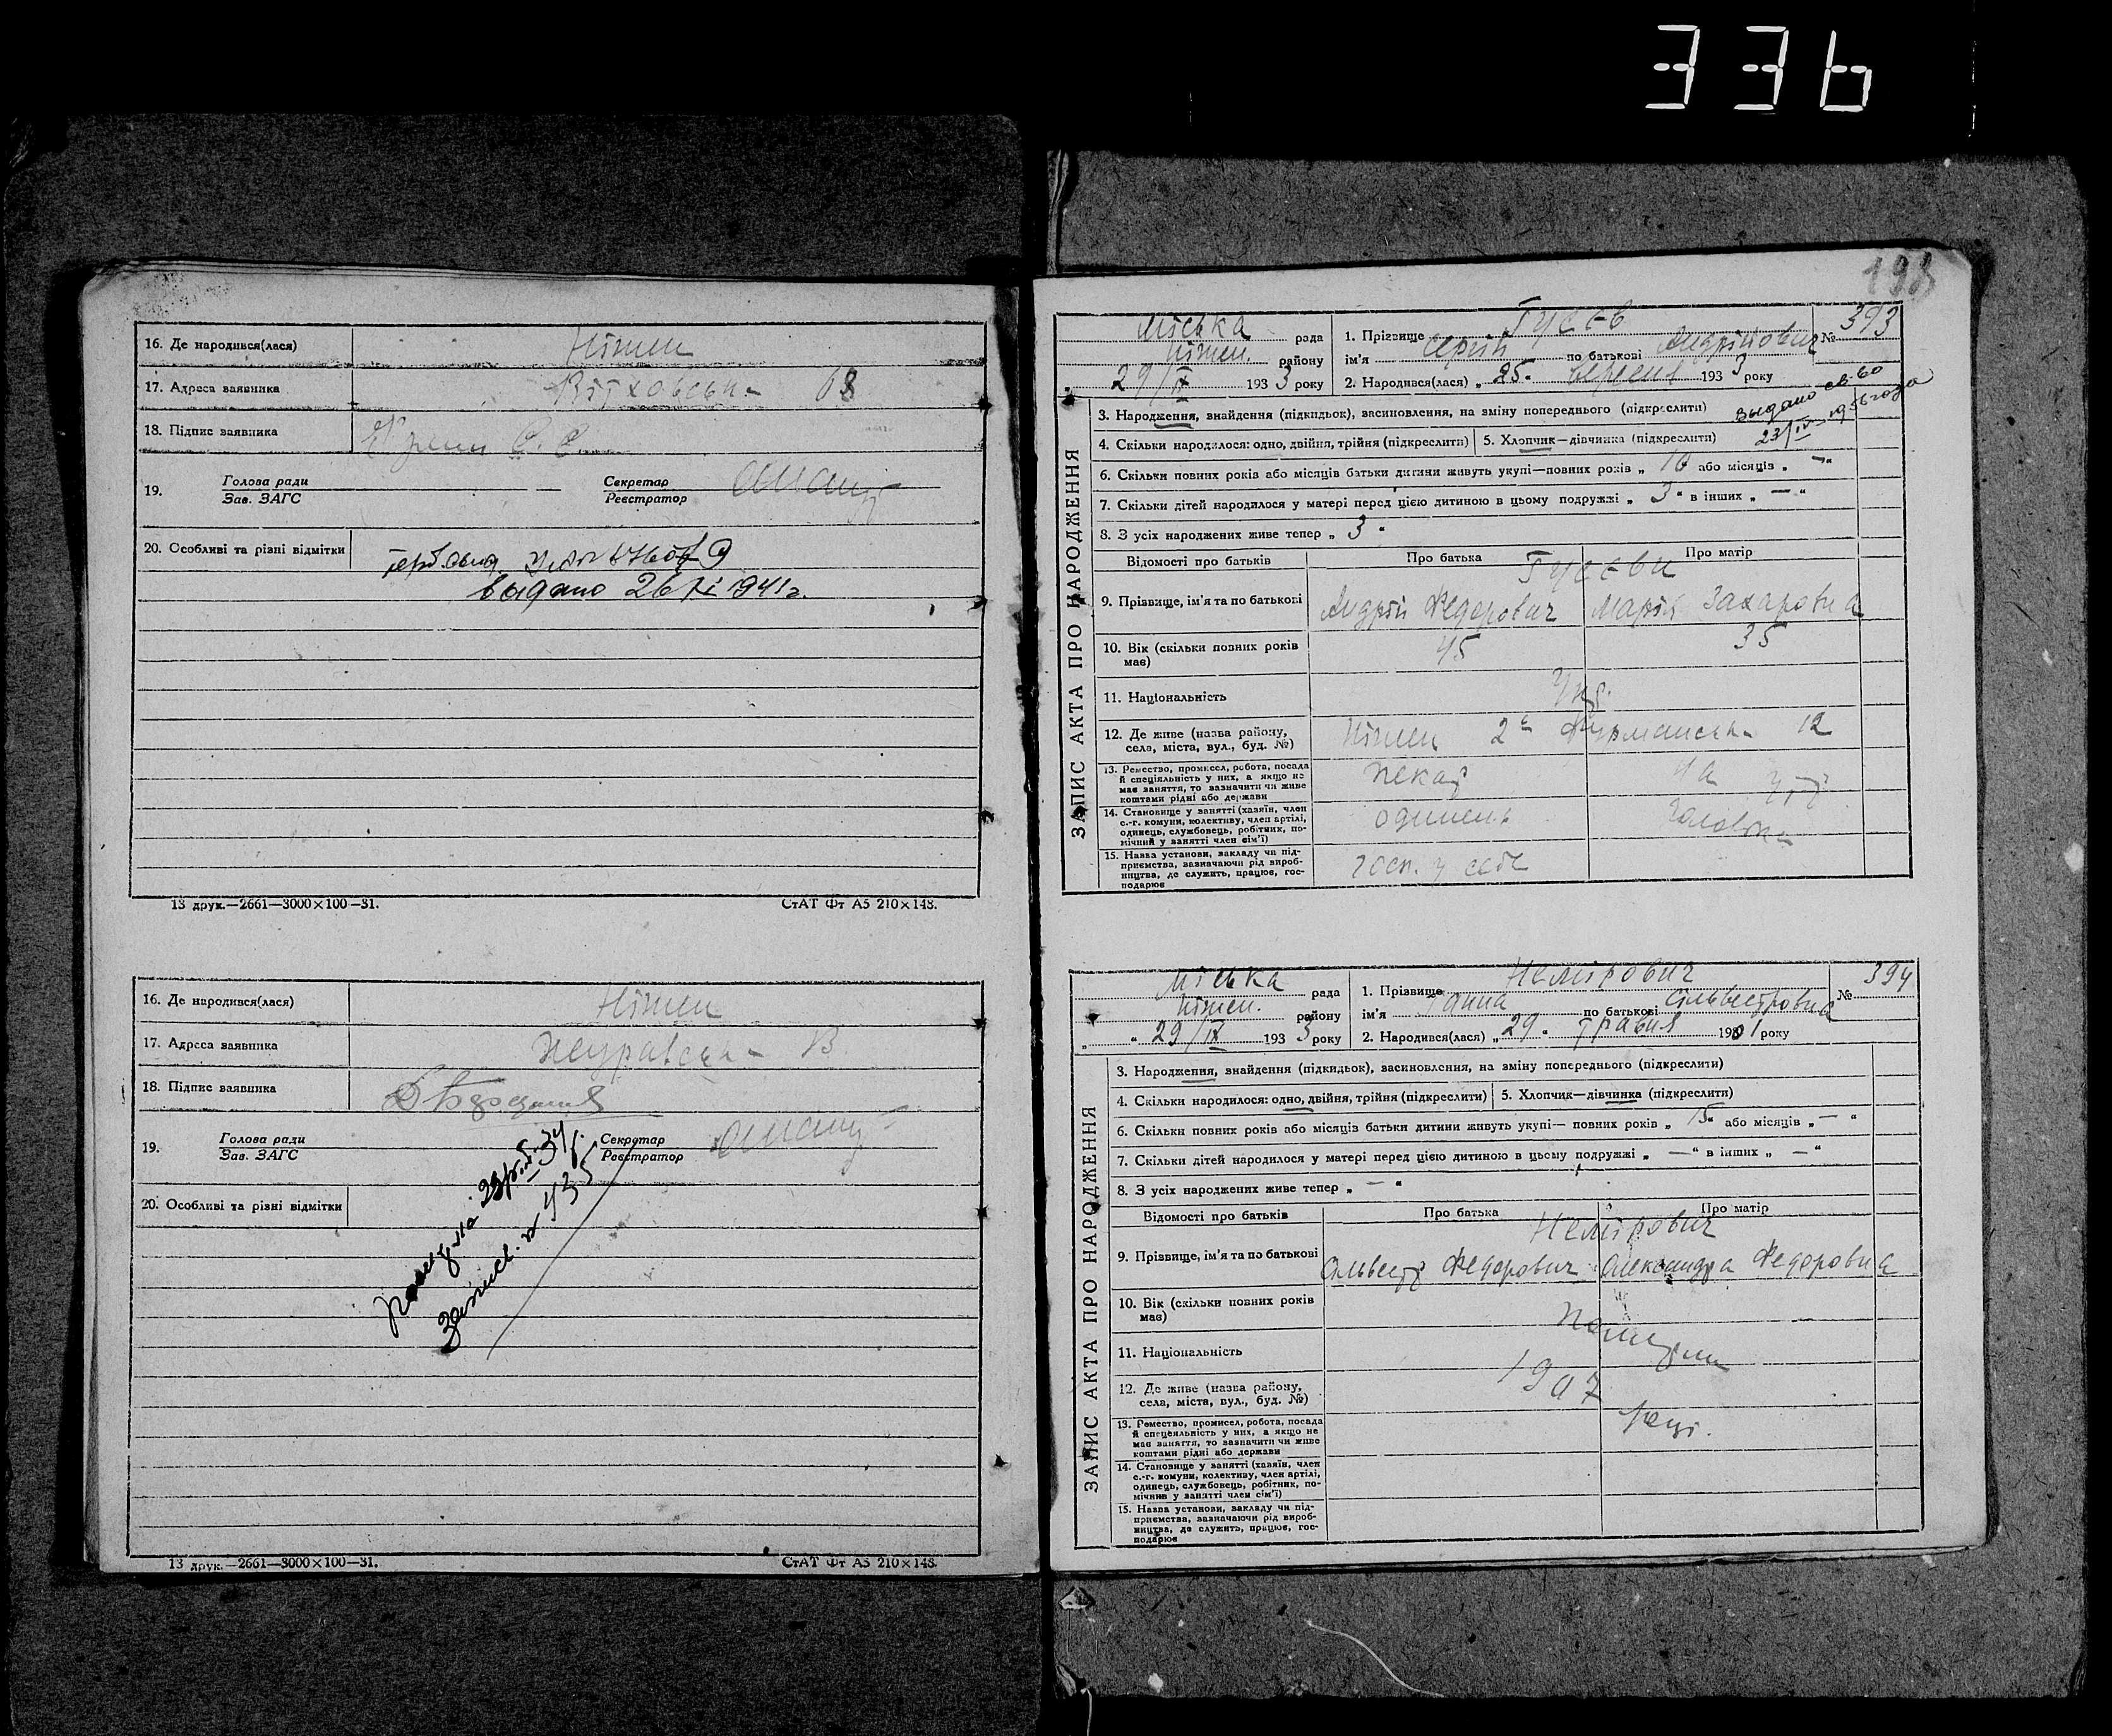 336
16. Де народився(лася) Ніжен
17. Адреса заявника 68
18. Підпис заявника
19. Голова ради
Зав. ЗАГС
Секретар
Реєстратор
20. Особливі та різні відмітки
выдано 26 1941 г.
13 друк.—2661—3000×100—31. СтАТ Фт А5 210×148.
16. Де народився(лася) Ніжен
17. Адреса заявника
18. Підпис заявника
19. Голова ради
Зав. ЗАГС
Секретар
Реєстратор
20. Особливі та різні відмітки
13 друк.—2661—3000×100—31. СтАТ Фт А5 210×148.
193
ЗАПИС АКТА ПРО НАРОДЖЕННЯ
Міська рада
Ніжен. району
„ 29/IX 1933 року
1. Прізвище Гусєв № 393
ім'я Сергій по батькові Андрійович
2. Народився(лася) „ 25 „ вересня 1933 року
3. Народження, знайдення (підкидьок), засиновлення, на зміну попереднього (підкреслити)
Выдано св-во
23/IV 1956 года
4. Скільки народилося: одно, двійня, трійня (підкреслити) 5. Хлопчик—дівчинка (підкреслити)
6. Скільки повних років або місяців батьки дитини живуть укупі—повних років „ 10 або місяців „ — “
7. Скільки дітей народилося у матері перед цією дитиною в цьому подружжі „ 3 “ в інших „ — “
8. З усіх народжених живе тепер „ 3 “
Відомості про батьків Про батька Про матір
Гусєви
9. Прізвище, ім'я та по батькові Андрій Федорович Марія Захаровна
10. Вік (скільки повних років має) 45 35
11. Національність Укр.
12. Де живе (назва району, села, міста, вул., буд. №) Ніжен 2а Фурманська 12
13. Ремество, промисел, робота, посада й спеціяльність у них, а якщо не має заняття, то зазначити чи живе коштами рідні або держави пекар на
14. Становище у занятті (хазяїн, член с.-г. комуни, колективу, член артілі, одинець, службовець, робітник, помічний у занятті член сім'ї) одинець
15. Назва установи, закладу чи підприємства, зазначаючи рід виробництва, де служить, працює, господарює госп. у себе
ЗАПИС АКТА ПРО НАРОДЖЕННЯ
Міська рада
Ніжен. району
„ “ 29/IX 1933 року
1. Прізвище Немірович № 394
ім'я Ганна по батькові Сільвестровна
2. Народився(лася) „ 29 „ травня 1901 року
3. Народження, знайдення (підкидьок), засиновлення, на зміну попереднього (підкреслити)
4. Скільки народилося: одно, двійня, трійня (підкреслити) 5. Хлопчик—дівчинка (підкреслити)
6. Скільки повних років або місяців батьки дитини живуть укупі— повних років „ 15 “ або місяців „ — “
7. Скільки дітей народилося у матері перед цією дитиною в цьому подружжі „ — “ в інших „ — “
8. З усіх народжених живе тепер „ — “
Відомості про батьків Про батька Про матір
Немірович
9. Прізвище, ім'я та по батькові Сільвестр Федорович Олександра Федоровна
10. Вік (скільки повних років має)
11. Національність
12. Де живе (назва району, села, міста, вул., буд. №) 1907
13. Ремество, промисел, робота, посада й спеціяльність у них, а якщо не має заняття, то зазначити чи живе коштами рідні або держави
14. Становище у занятті (хазяїн, член с.-г. комуни, колективу, член артілі, одинець, службовець, робітник, помічний у занятті член сім'ї)
15. Назва установи, закладу чи підприємства, зазначаючи рід виробництва, де служить, працює, господарює